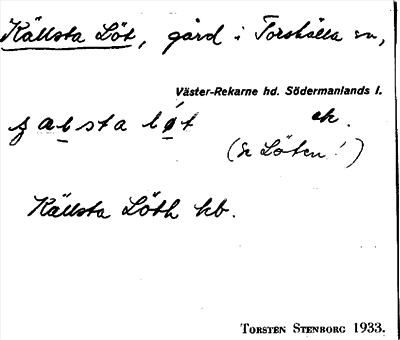 Källsta Löt, gård i Torshälla sn,
Väster-Rekarne hd. Södermanlands l.
ek.
(Se Löten!)
Källsta Löth kb.
TORSTEN STENBORG 1933.